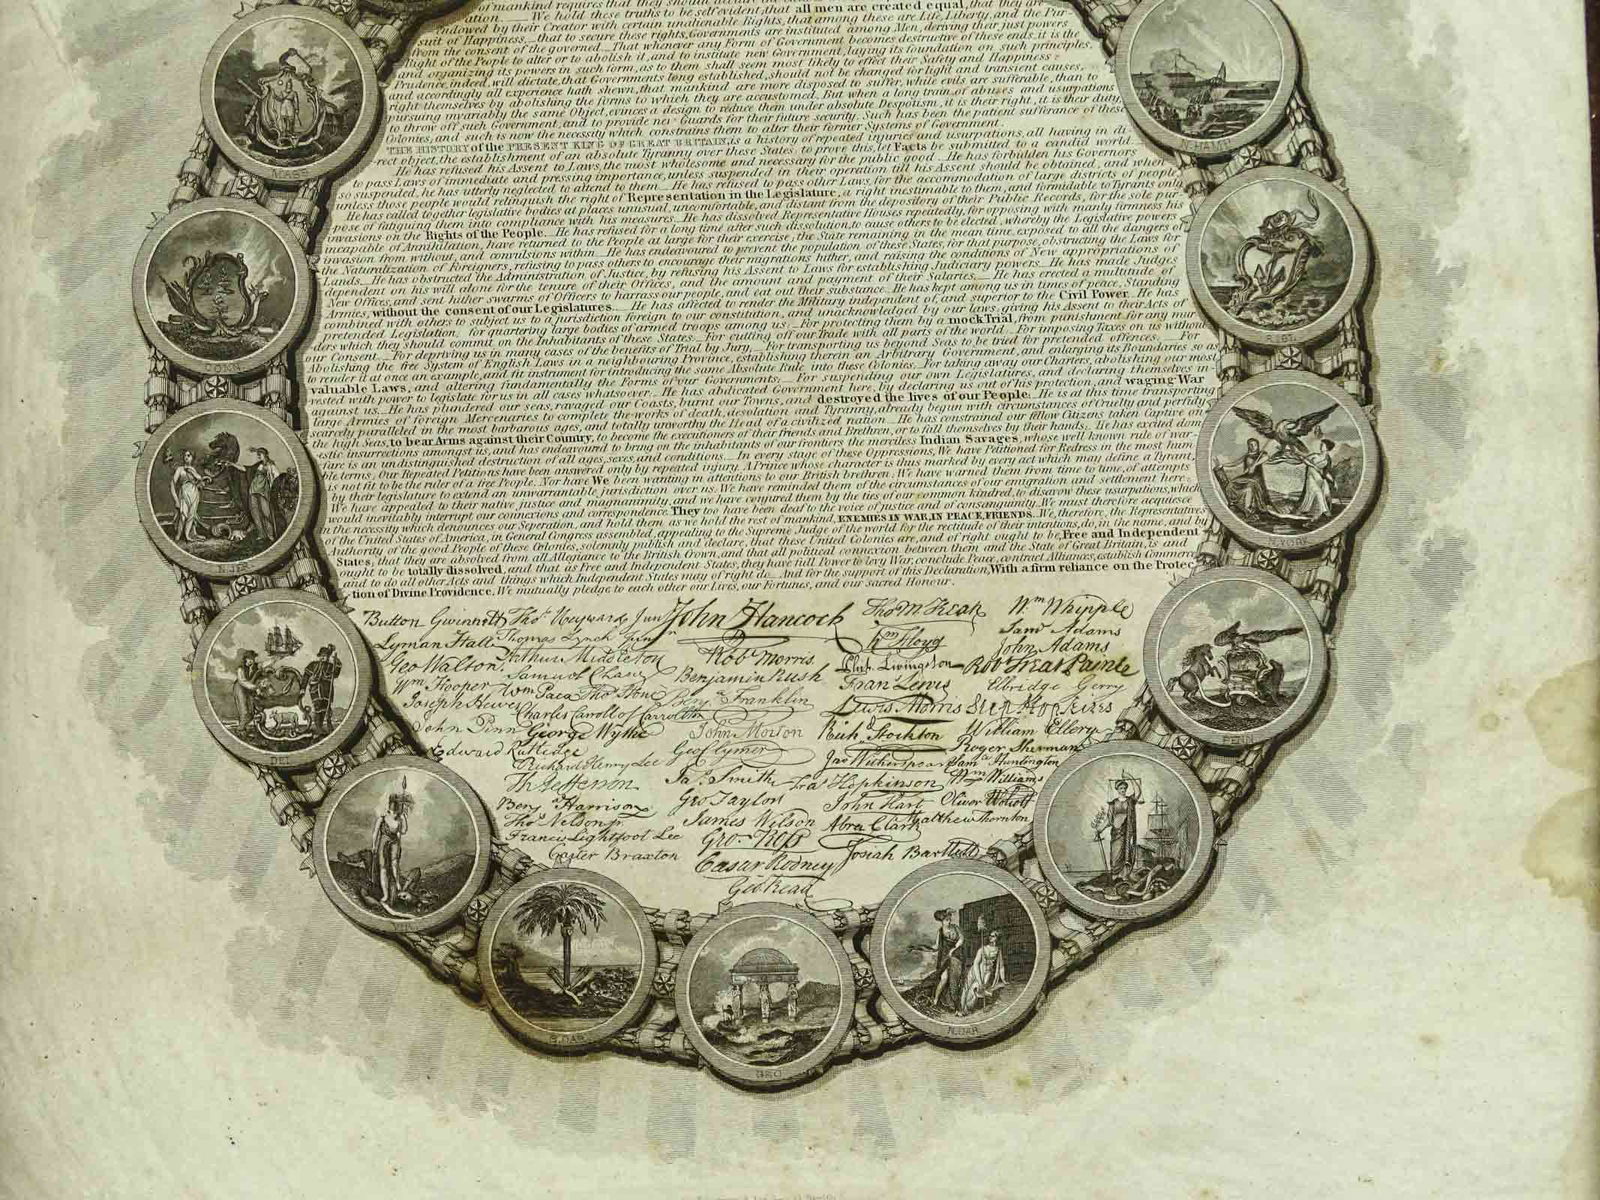 of mankind requires that they should declare the
ation. We hold these truths to be self evident, that all men are created equal, that they are
endowed by their Creator with certain unalienable Rights, that among these are Life, Liberty, and the Pur
suit of Happiness,—that to secure these rights, Governments are instituted among Men, deriving their just powers
from the consent of the governed.—That whenever any Form of Government becomes destructive of these ends, it is the
Right of the People to alter or to abolish it, and to institute new Government, laying its foundation on such principles,
and organizing its powers in such form, as to them shall seem most likely to effect their Safety and Happiness:
Prudence, indeed, will dictate, that Governments long established, should not be changed for light and transient causes,
and accordingly all experience hath shewn, that mankind are more disposed to suffer, while evils are sufferable, than to
right themselves by abolishing the forms to which they are accustomed. But when a long train of abuses and usurpations
pursuing invariably the same Object, evinces a design to reduce them under absolute Despotism, it is their right, it is their duty,
to throw off such Government, and to provide new Guards for their future security. Such has been the patient sufferance of these
Colonies, and such is now the necessity which constrains them to alter their former Systems of Government.
THE HISTORY of the PRESENT KING OF GREAT BRITAIN, is a history of repeated injuries and usurpations, all having in di-
rect object, the establishment of an absolute Tyranny over these States: to prove this, let Facts be submitted to a candid world.
He has refused his Assent to Laws, the most wholesome and necessary for the public good. He has forbidden his Governors
to pass Laws of immediate and pressing importance, unless suspended in their operation till his Assent should be obtained, and when
so suspended, he has utterly neglected to attend to them. He has refused to pass other Laws, for the accommodation of large districts of people,
unless those people would relinquish the right of Representation in the Legislature, a right inestimable to them, and formidable to Tyrants only.
He has called together legislative bodies at places unusual, uncomfortable, and distant from the depository of their Public Records, for the sole pur
pose of fatiguing them into compliance with his measures. He has dissolved Representative Houses repeatedly, for opposing with manly firmness his
invasions on the Rights of the People. He has refused for a long time after such dissolution, to cause others to be elected, whereby the Legislative powers
incapable of Annihilation, have returned to the People at large for their exercise, the State remaining in the mean time, exposed to all the dangers of
invasion from without, and convulsions within. He has endeavoured to prevent the population of these States, for that purpose, obstructing the Laws for
the Naturalization of Foreigners, refusing to pass others to encourage their migrations hither, and raising the conditions of New appropriations of
Lands. He has obstructed the Administration of Justice, by refusing his Assent to Laws for establishing Judiciary powers. He has made Judges
dependent on his will alone for the tenure of their Offices, and the amount and payment of their Salaries. He has erected a multitude of
New Offices, and sent hither swarms of Officers to harrass our people, and eat out their substance. He has kept among us in times of peace, Standing
Armies, without the consent of our Legislatures. He has affected to render the Military independent of, and superior to the Civil Power. He has
combined with others to subject us to a jurisdiction foreign to our constitution, and unacknowledged by our laws, giving his Assent to their Acts of
pretended Legislation. For quartering large bodies of armed troops among us. For protecting them by a mock Trial, from punishment for any mur
ders which they should commit on the Inhabitants of these States. For cutting off our Trade with all parts of the world. For imposing Taxes on us without
our Consent. For depriving us in many cases of the benefits of Trial by Jury. For transporting us beyond Seas to be tried for pretended offences. For
Abolishing the free System of English Laws in a neighbouring Province, establishing therein an Arbitrary Government, and enlarging its Boundaries so
to render it at once an example, and fit instrument for introducing the same Absolute Rule into these Colonies. For taking away our Charters, abolishing our most
valuable Laws, and altering fundamentally the Forms of our Governments. For suspending our own Legislatures, and declaring themselves in
vested with power to legislate for us in all cases whatsoever. He has abdicated Government here, by declaring us out of his protection, and waging War
against us. He has plundered our seas, ravaged our Coasts, burnt our Towns, and destroyed the lives of our People. He is at this time transporting
large Armies of foreign Mercenaries to complete the works of death, desolation and Tyranny, already begun with circumstances of Cruelty and perfidy,
scarcely paralleled in the most barbarous ages, and totally unworthy the Head of a civilized nation. He has constrained our fellow Citizens taken Captive on
high Seas, to bear Arms against their Country, to become the executioners of their friends and Brethren, or to fall themselves by their hands. He has excited dom
estic insurrections amongst us, and has endeavoured to bring on the inhabitants of our frontiers the merciless Indian Savages, whose well known rule of war
fare is an undistinguished destruction of all ages, sexes, and conditions. In every stage of these Oppressions, We have Petitioned for Redress in the most hum
ble terms; Our Repeated Petitions have been answered only by repeated injury. A Prince whose character is thus marked by every act which may define a Tyrant,
is not fit to be the ruler of a free People. Nor have We been wanting in attentions to our British brethren. We have warned them from time to time, of attempts
by their legislature to extend an unwarrantable jurisdiction over us. We have reminded them of the circumstances of our emigration and settlement here.
We have appealed to their native justice and magnanimity, and we have conjured them by the ties of our common kindred, to disavow these usurpations, which
would inevitably interrupt our connexions and correspondence. They too have been deaf to the voice of justice and of consanguinity. We must therefore acquiesce
in the necessity which denounces our Seperation, and hold them, as we hold the rest of mankind, ENEMIES IN WAR, IN PEACE, FRIENDS. We, therefore, the Representatives
of the United States of America, in General Congress assembled, appealing to the Supreme Judge of the world for the rectitude of their intentions, do, in the name, and by
Authority of the good People of these Colonies, solemnly publish and declare, that these United Colonies are, and of right ought to be, Free and Independent
States; that they are absolved from all Allegiance to the British Crown, and that all political connexion between them and the State of Great Britain, is and
ought to be totally dissolved, and that as Free and Independent States, they have full Power to levy War, conclude Peace, contract Alliances, establish Commerce
and to do all other Acts and things which Independent States may of right do. And for the support of this Declaration, With a firm reliance on the Protec
tion of Divine Providence, We mutually pledge to each other our Lives, our Fortunes, and our Sacred Honour.
Button Gwinnett Thos Heyward Junr John Hancock Tho M Kean Wm Whipple
Lyman Hall Thomas Lynch Junr Wm Floyd Saml Adams
Geo Walton Arthur Middleton Robt Morris Phil. Livingston John Adams
Wm Hooper Samuel Chase Benjamin Rush Frans Lewis Robt Treat Paine
Joseph Hewes Wm Paca Thos Stone Benj Franklin Lewis Morris Elbridge Gerry
John Penn Charles Carroll of Carrollton John Morton Richd Stockton Step Hopkins
Edward Rutledge George Wythe Geo Clymer Jno Witherspoon William Ellery
Richard Henry Lee Jas Smith Fras Hopkinson Roger Sherman
Th Jefferson Geo Taylor John Hart Saml Huntington
Benj Harrison James Wilson Abra Clark Wm Williams
Thos Nelson jr Geo. Ross Oliver Wolcott
Francis Lightfoot Lee Caesar Rodney Matthew Thornton
Carter Braxton Geo Read Josiah Bartlett
MASS
CONN
N.JER
DEL
VIR
S.CAR
GEO
N.CAR
MAR
PENN
N.YORK
R.ISL
N.HAMP